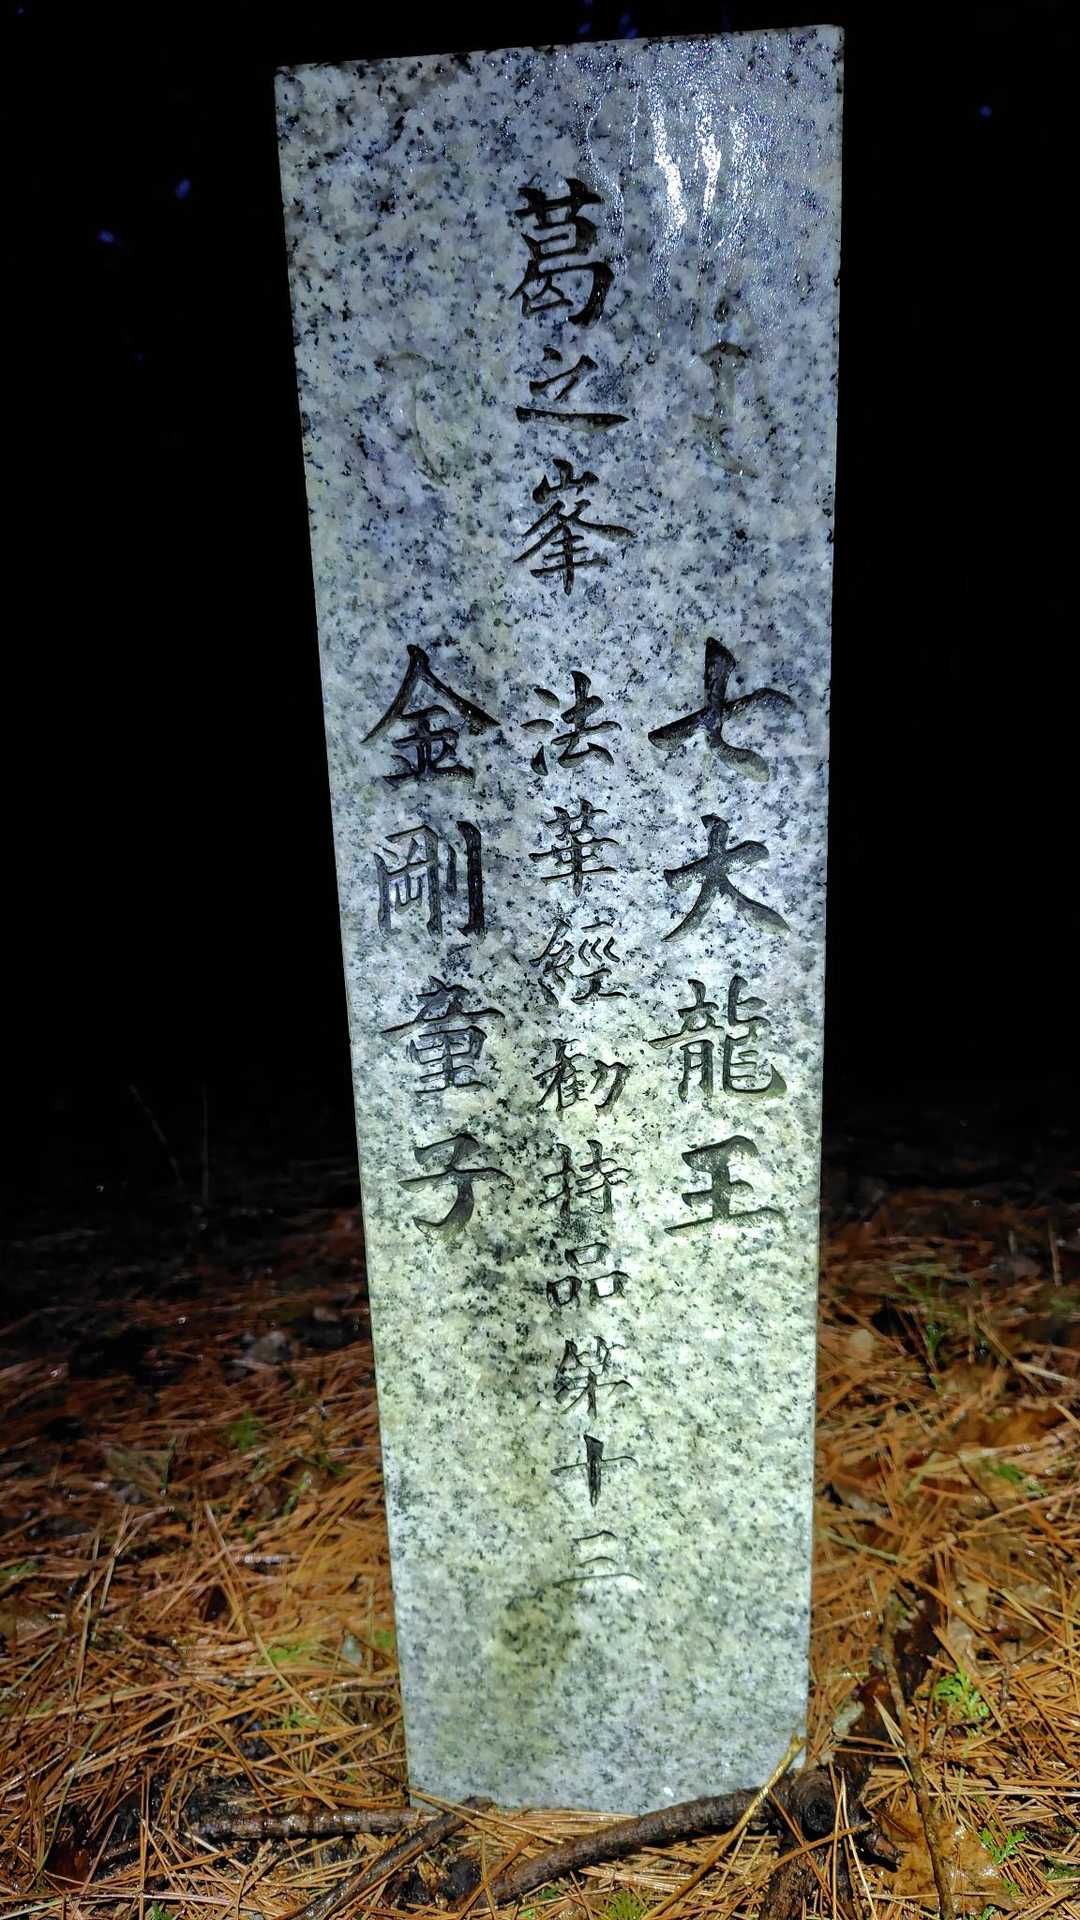 七大龍王
葛之峯 法華經勸持品第十三
金剛童子